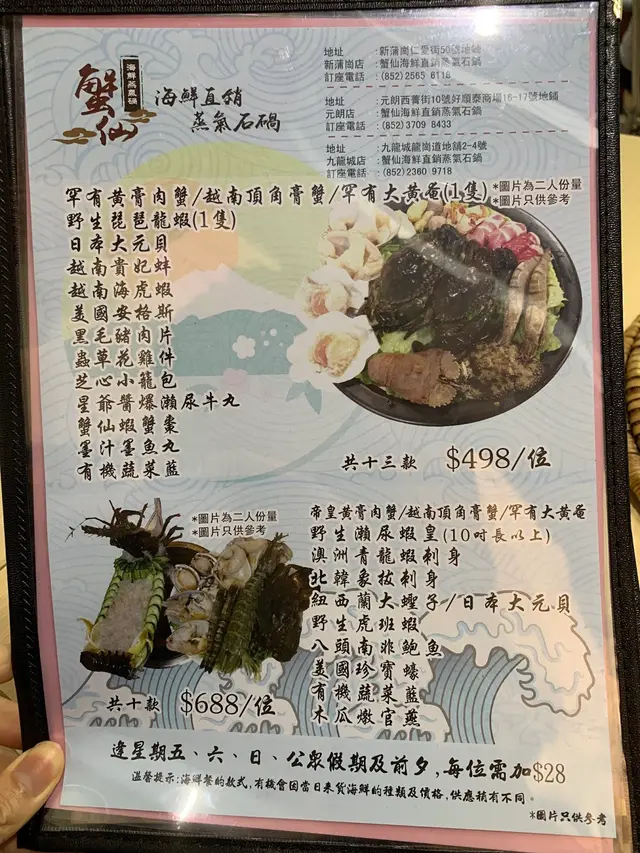 蟹仙
海鮮蒸氣石鍋
海鮮直銷
蒸氣石鍋
地址 : 新蒲崗仁愛街50號地舖
新蒲崗店 : 蟹仙海鮮直銷蒸氣石鍋
訂座電話 : (852) 2565 6118
地址 : 元朗西菁街10號好順泰商場16-17號地舖
元朗店 : 蟹仙海鮮直銷蒸氣石鍋
訂座電話 : (852) 3709 8433
地址 : 九龍城龍崗道地舖2-4號
九龍城店 : 蟹仙海鮮直銷蒸氣石鍋
訂座電話 : (852) 2360 9718
罕有黃膏肉蟹/越南頂角膏蟹/罕有大黃奄(1隻)
*圖片為二人份量
*圖片只供參考
野生琵琶龍蝦(1隻)
日本大元貝
越南貴妃蚌
越南海虎蝦
美國安格斯
黑毛豬肉片
蟲草花雞件
芝心小籠包
星爺醬爆瀨尿牛丸
蟹仙蝦蟹棗
墨汁墨魚丸
有機蔬菜藍
共十三款 $498/位
*圖片為二人份量
*圖片只供參考
帝皇黃膏肉蟹/越南頂角膏蟹/罕有大黃奄
野生瀨尿蝦皇(10吋長以上)
澳洲青龍蝦刺身
北韓象拔刺身
紐西蘭大蟶子/日本大元貝
野生虎班蝦
八頭南非鮑魚
美國珍寶蠔
有機蔬菜藍
木瓜燉官燕
共十款 $688/位
逢星期五、六、日、公眾假期及前夕,每位需加$28
溫馨提示:海鮮餐的款式,有機會因當日來貨海鮮的種類及價格,供應稍有不同。
*圖片只供參考